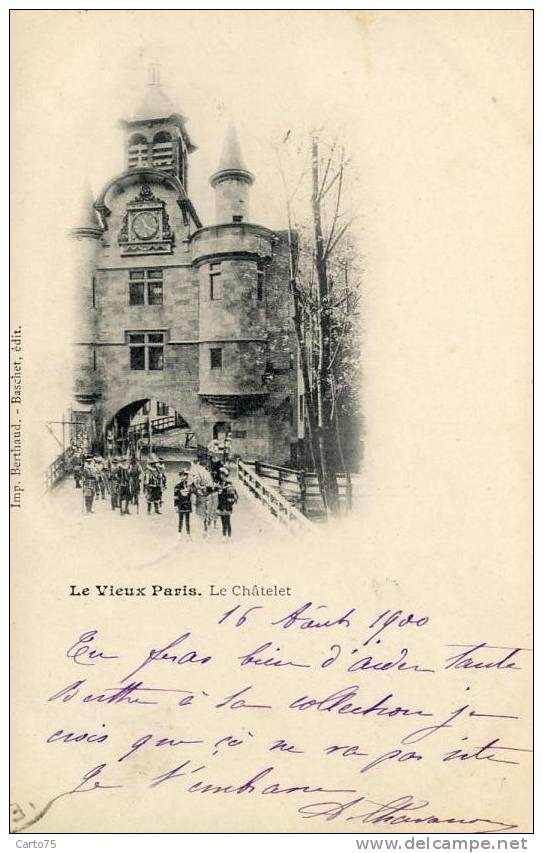 Imp. Berthaud. - Baschet, édit.
Le Vieux Paris. Le Châtelet
16 Août 1900
Tu feras bien d'aider tante
Berthe à sa collection je
crois que ça ne va pas vite
Je t'embrasse
Carto75
http://www.delcampe.net